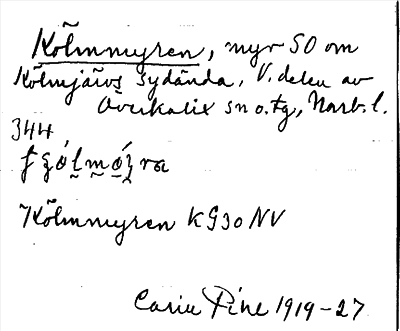 Kölmmyren, myr SO om
Kölmjärvs sydända, V. delen av
Överkalix sn o. tg, Norrb. l.
344
Kölmmyren KG30 NV
Carin Pihl 1919–27